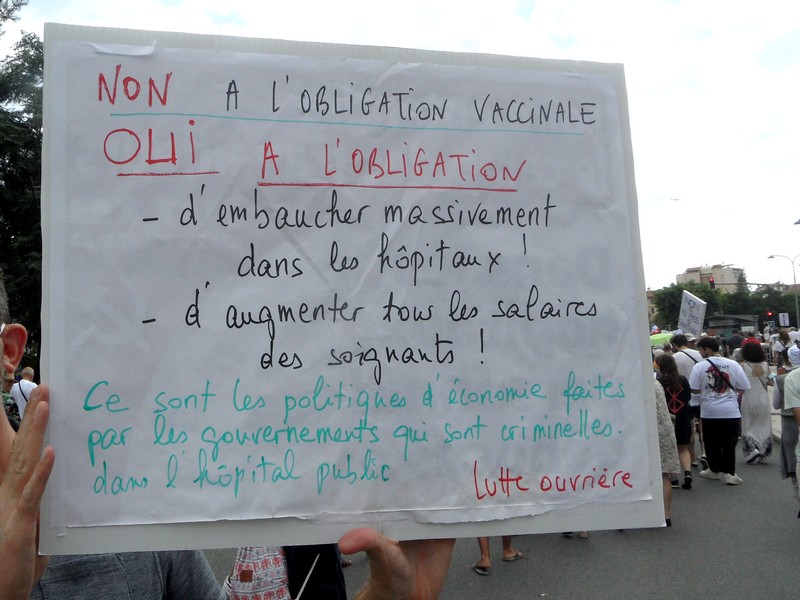 NON A L'OBLIGATION VACCINALE
OUI A L'OBLIGATION
- d'embaucher massivement
dans les hôpitaux !
- d'augmenter tous les salaires
des soignants !
Ce sont les politiques d'économie faites
par les gouvernements qui sont criminelles.
dans l'hôpital public
Lutte ouvrière